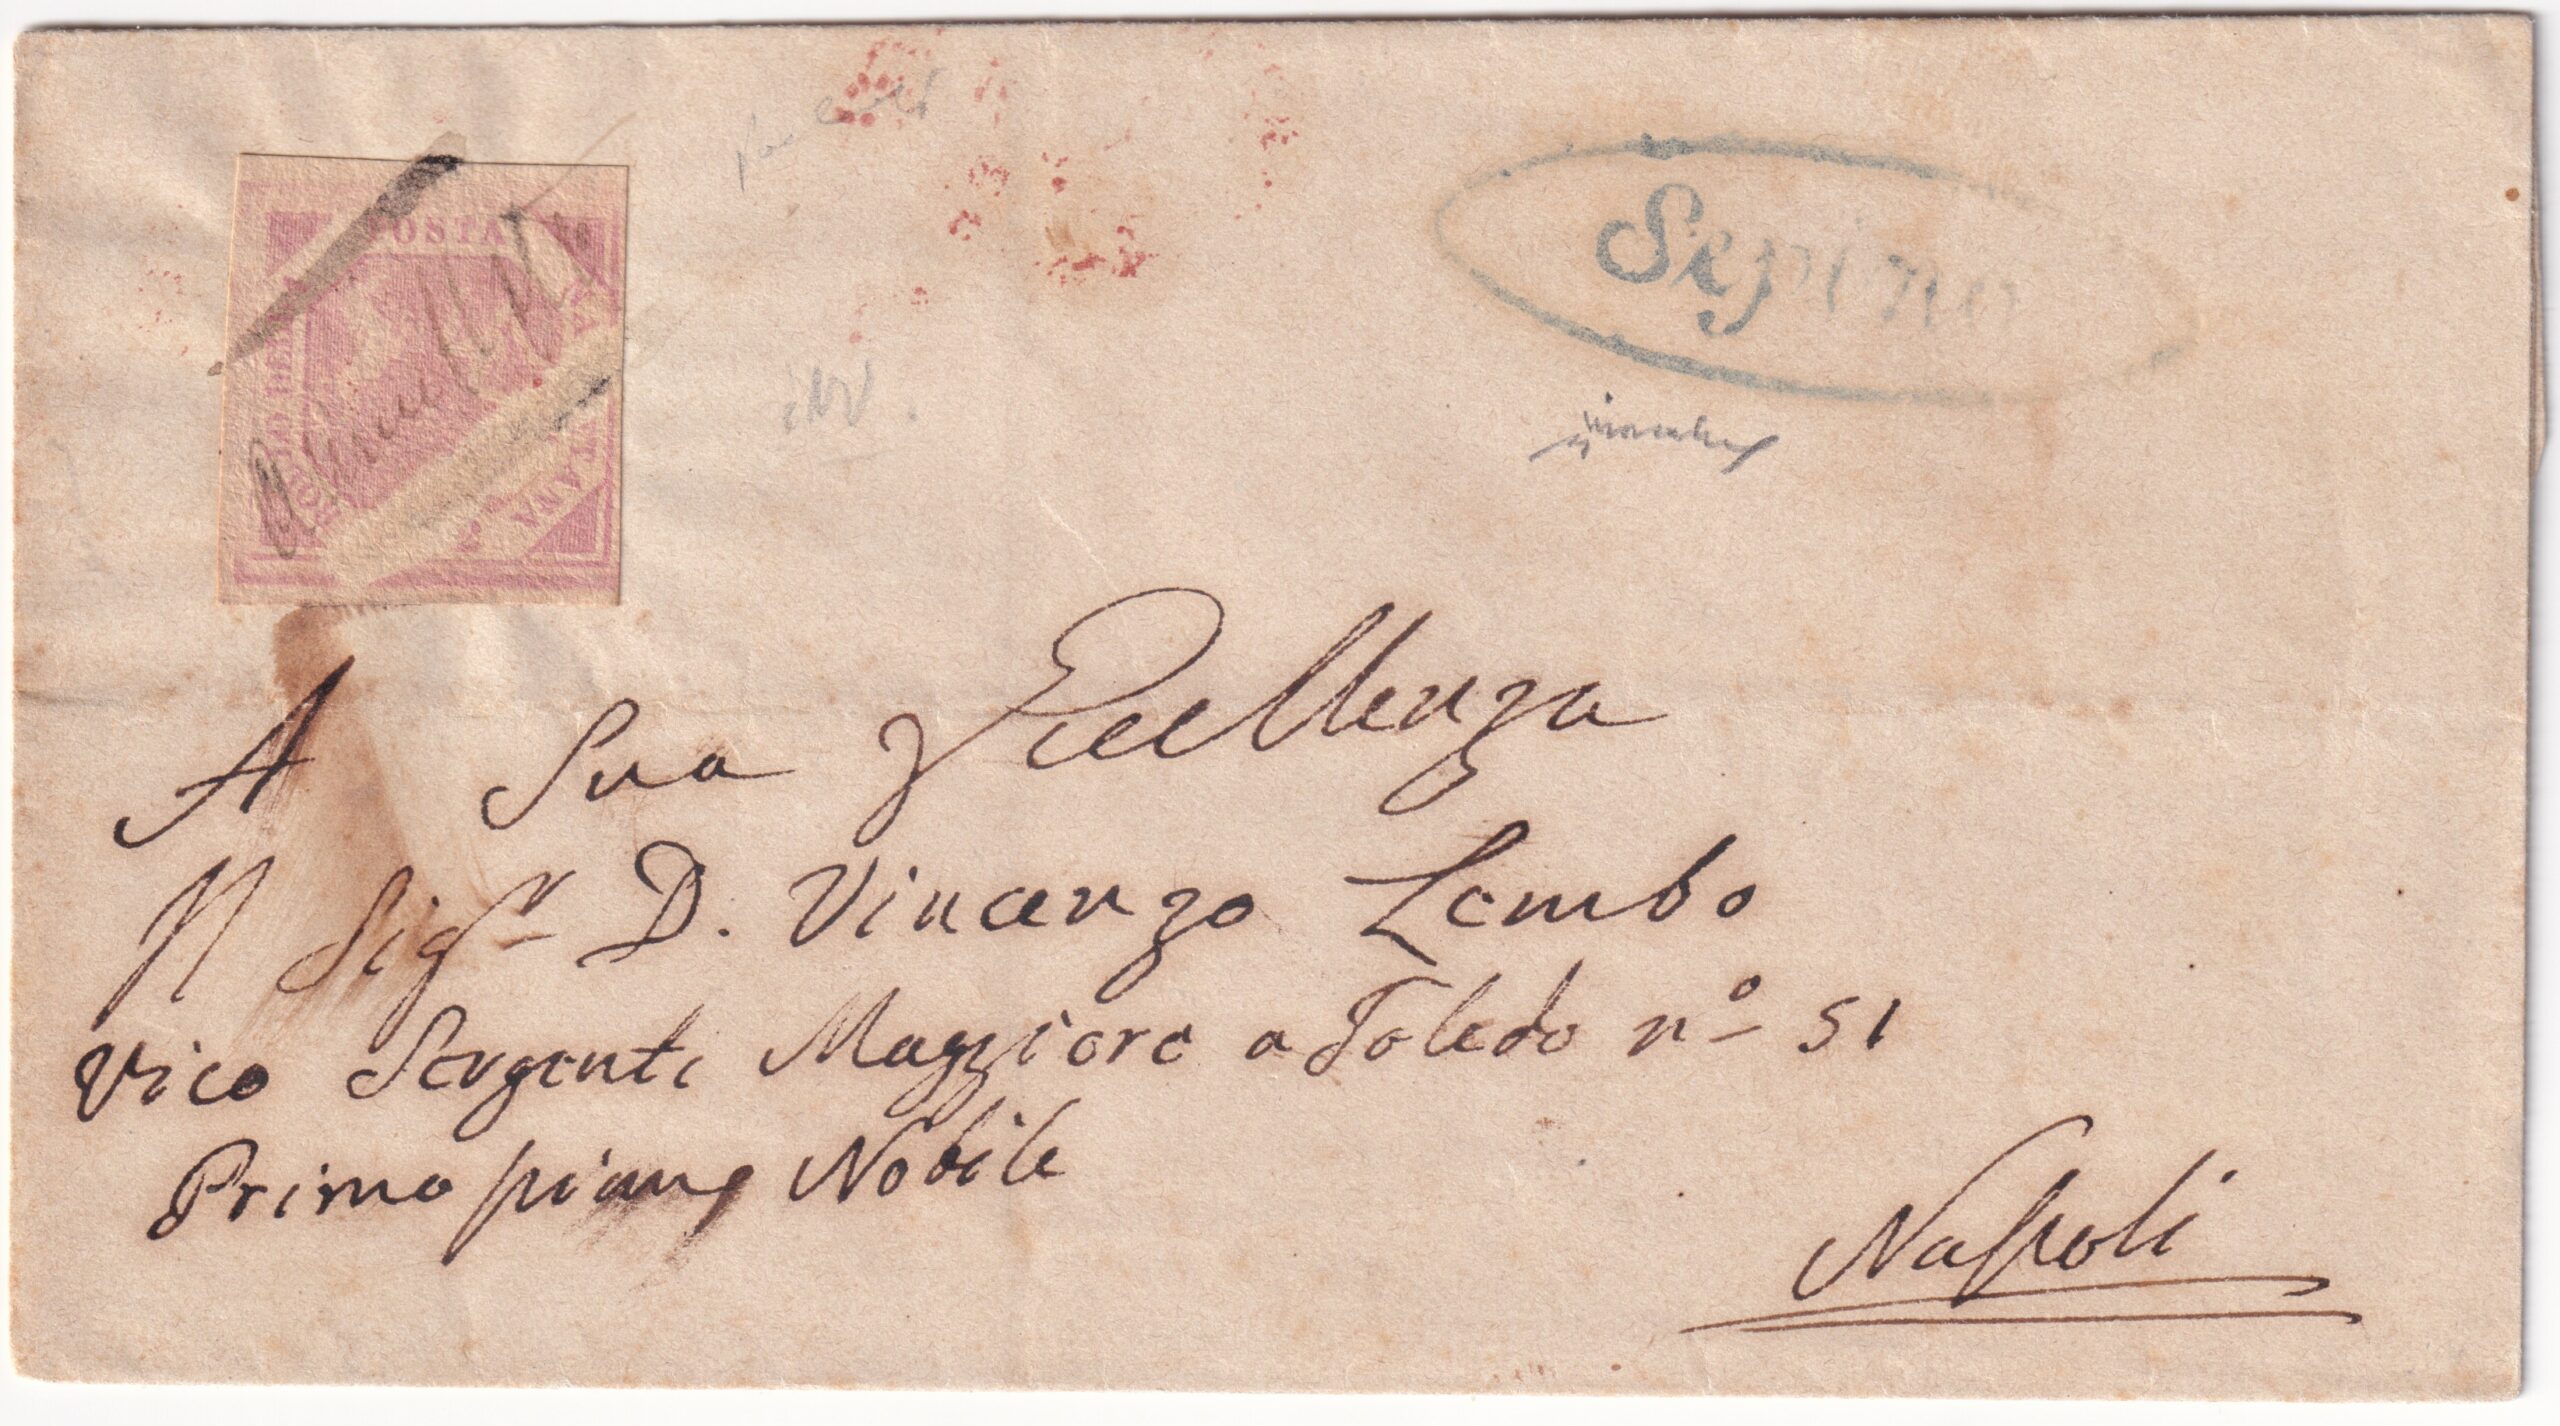 POSTA
BOLLO DELLA
NAPOLETANA
Annullato
Sepino
A Sua Eccellenza
Il Sigr D. Vincenzo Lembo
Vico Sergente Maggiore a Toledo no 51
Primo piano Nobile
Napoli